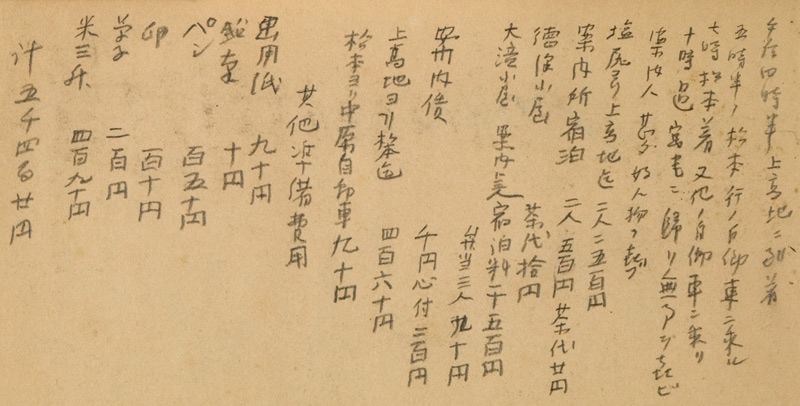 午后四時半上高地ニ到着
五時半ノ松本行ノ自仂車ニ乗ル
七時松本着 又他ノ自仂車ニ乗リ
十時過 ニ帰リ無事ヲ喜ビ
案内人 好人物ヲ喜ブ
塩尻ヨリ上高地迄 二人ニ五百円
案内所宿泊 二人 五百円 茶代廿円
徳沢小屋 茶代拾円
大滝小屋 案内共宿泊料千五百円
弁当三人 九十円
案内債 千円心付二百円
上高地ヨリ松本迄 四百六十円
松本ヨリ中原自仂車九十円
其他準備費用
黒用紙 九十円
鉛筆 十円
パン 百五十円
卵 百十円
菓子 二百円
米三升 四百九十円
計五千四百廿円